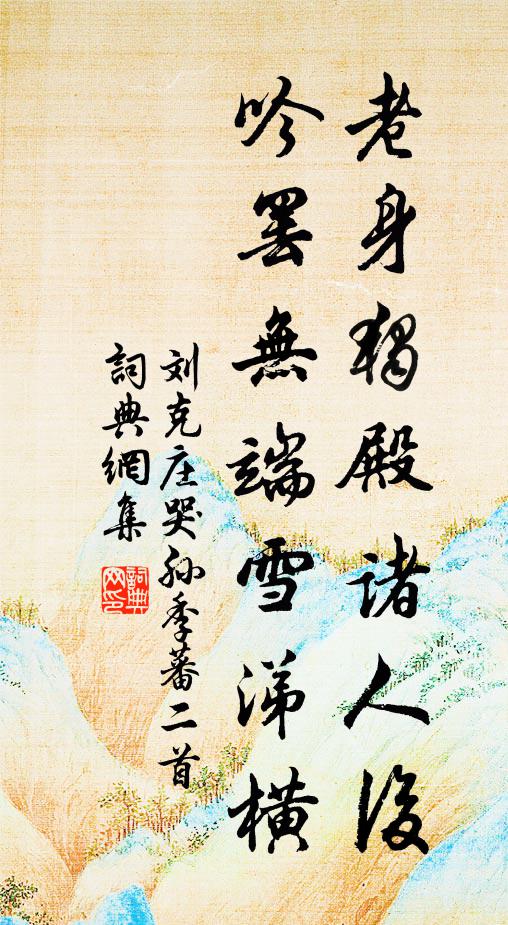 老身獨殿诸人後
吟罢無端雪涕橫
刘克庄哭孙季蕃二首
詞典網集
詞典网印